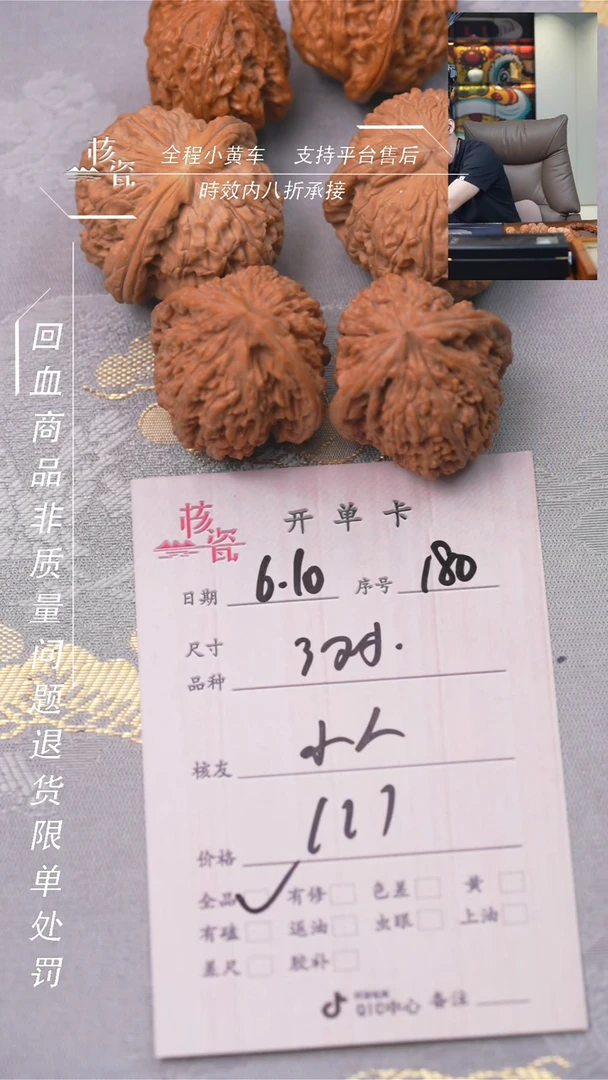 核瓷
全程小黄车 支持平台售后
時效内八折承接
回血商品非质量问题退货限单处罚
核瓷
开单卡
日期 6.10 序号 180
尺寸
品种 3对.
核友 小人
价格 117
全品 ✓ 有修 色差 黄
有磕 返油 虫眼 上油
差尺 胶补
QIC中心 备注